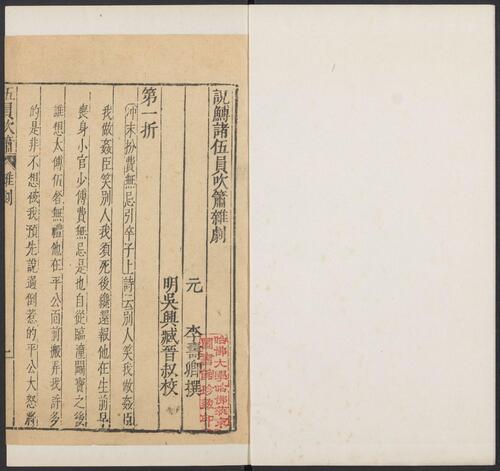 說鱄諸伍員吹簫雜劇
元 李壽卿撰
明吳興臧晉叔校
第一折
沖末扮費無忌引卒子上詩云別人笑我做姦臣
我做姦臣笑別人我須死後纔還報他在生前早
喪身小官少傅費無忌是也自從臨潼鬪寶之後
誰想太傅伍奢無禮他在平公面前搬弄我許多
的是非不想被我預先說過倒惹的平公大怒將
伍員吹簫 雜劇 一
哈佛大學哈佛燕京
圖書館珍藏印